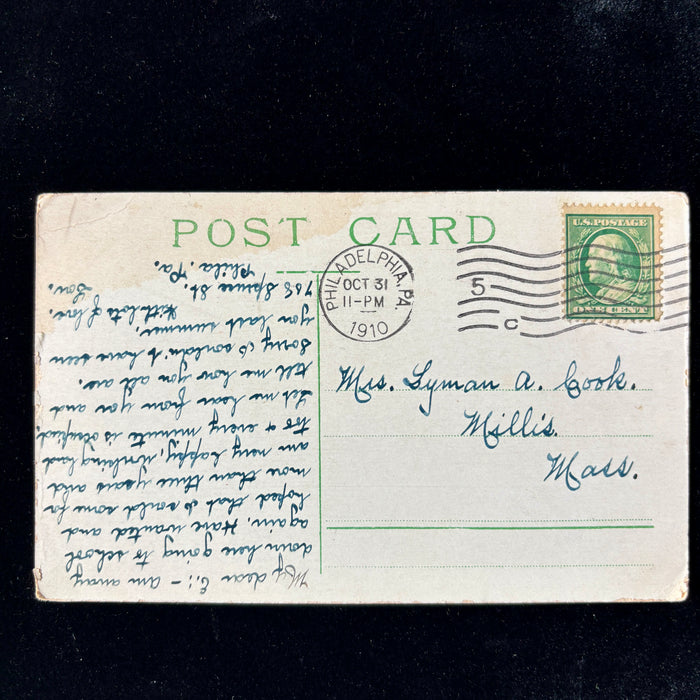 POST CARD
U.S. POSTAGE
PHILADELPHIA, PA.
OCT 31
11-PM
1910
5
C
Mrs. Lyman A. Cook.
Millis.
Mass.
My dear E.:- am away
down here going to school
again. Have wanted and
hoped that I could come for
more than three years and
am very happy, working hard
too & every minute is occupied.
Let me hear from you and
tell me how you all are.
Sorry I couldn't have seen
you last summer.
With lots of love,
Lou.
Spruce St.
Phila. Pa.